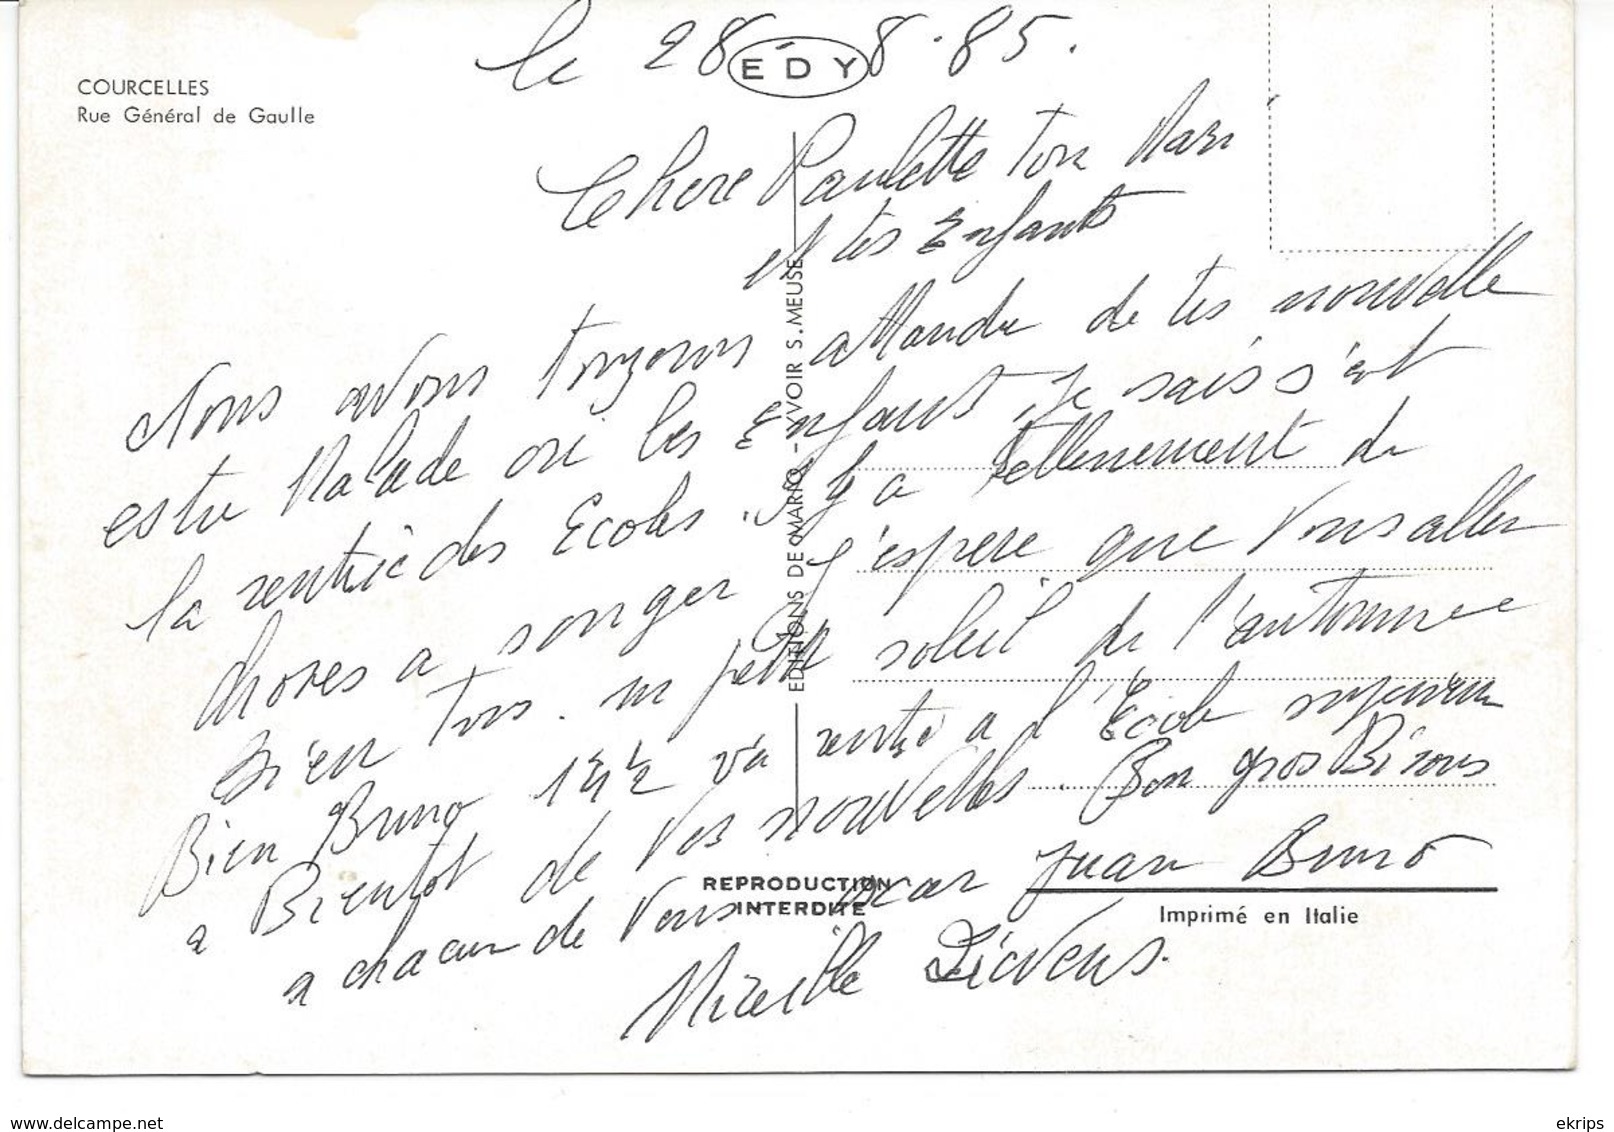 COURCELLES
Rue Général de Gaulle
le 28.8.85.
ÉDY
Chere Paulette Ton Mari
et tes Enfants
Nous avons toujours attandu de tes nouvelle
estu Malade ou les Enfants. Je sais s'est
la rentrié des Ecoles. il y a tellement de
choses a songer j'espere que vous aller
Bien tous. un petit soleil de l'automne
Bien Bruno 15 1/2 va rentré a l'École
a Bientot de vos nouvelles. Bon gros Bisous
a chacun de vous Oscar Juan Bruno
Mireille Lievens.
EDITIONS DE MARIO - YVOIR S. MEUSE
REPRODUCTION
INTERDITE
Imprimé en Italie
ekrips